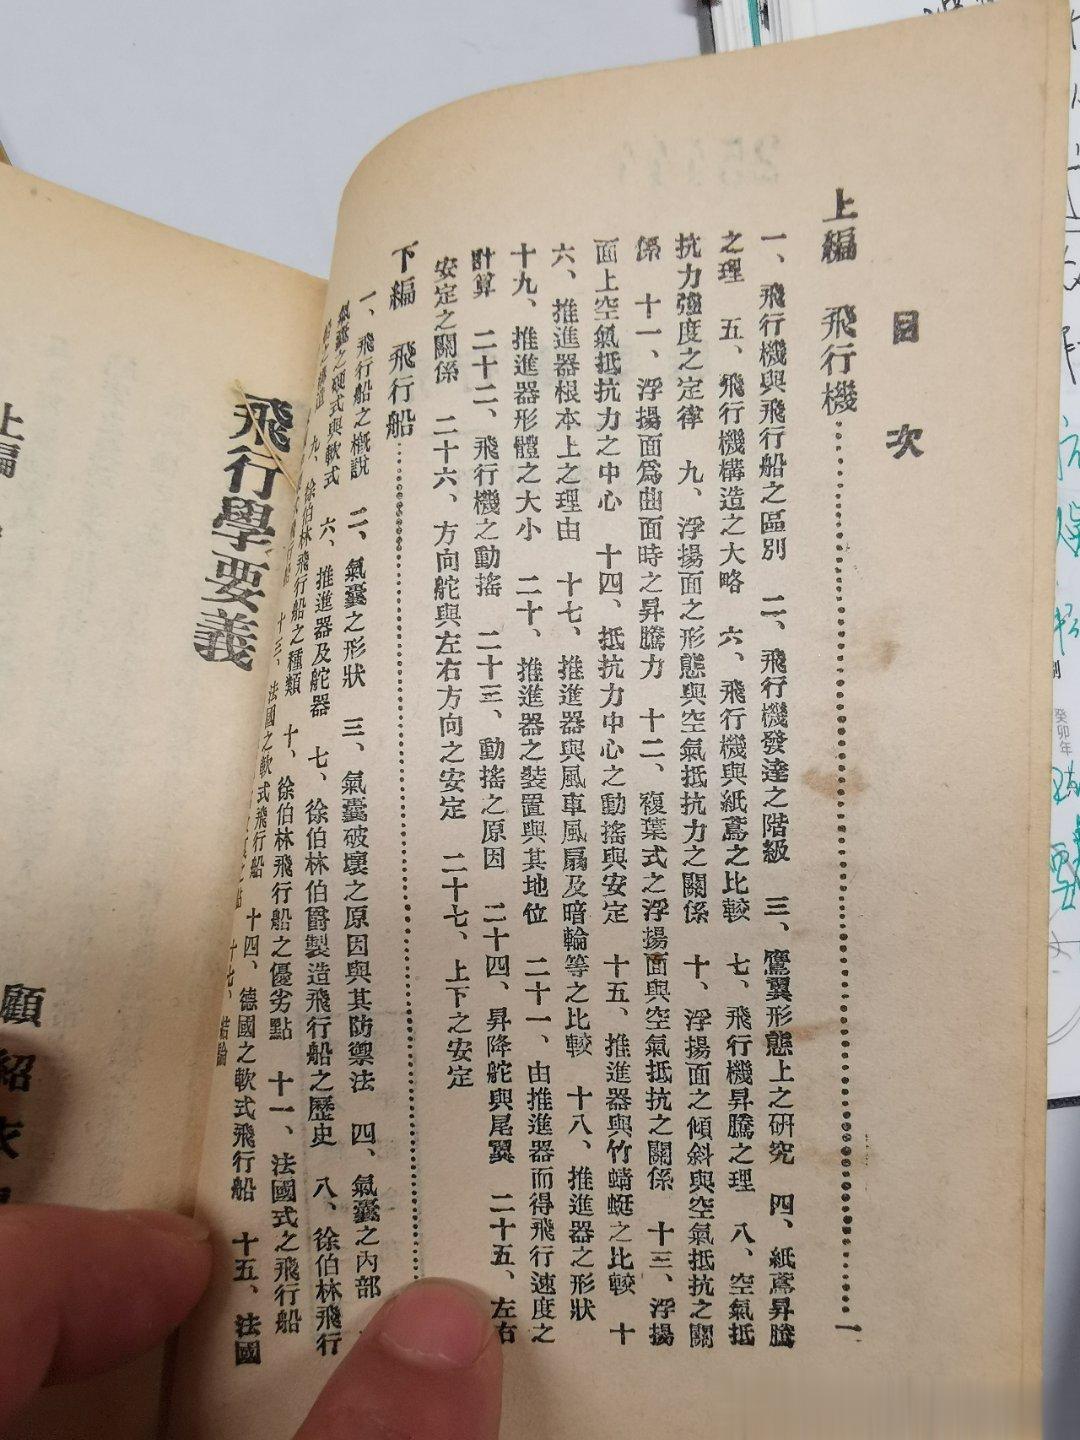 目次
上編　飛行機…………一
一、飛行機與飛行船之區別　二、飛行機發達之階級　三、鷹翼形態上之研究　四、紙鳶昇騰
之理　五、飛行機構造之大略　六、飛行機與紙鳶之比較　七、飛行機昇騰之理　八、空氣抵
抗力強度之定律　九、浮揚面之形態與空氣抵抗力之關係　十、浮揚面之傾斜與空氣抵抗之關
係　十一、浮揚面爲曲面時之昇騰力　十二、複葉式之浮揚面與空氣抵抗之關係　十三、浮揚
面上空氣抵抗力之中心　十四、抵抗力中心之動搖與安定　十五、推進器與竹蜻蜓之比較　十
六、推進器根本上之理由　十七、推進器與風車風扇及暗輪等之比較　十八、推進器之形狀
十九、推進器形體之大小　二十、推進器之裝置與其地位　二十一、由推進器而得飛行速度之
計算　二十二、飛行機之動搖　二十三、動搖之原因　二十四、昇降舵與尾翼　二十五、左右
安定之關係　二十六、方向舵與左右方向之安定　二十七、上下之安定
下編　飛行船…………
一、飛行船之概說　二、氣囊之形狀　三、氣囊破壞之原因與其防禦法　四、氣囊之內部
氣囊之硬式與軟式　六、推進器及舵器　七、徐伯林伯爵製造飛行船之歷史　八、徐伯林飛行
九、徐伯林飛行船之種類　十、徐伯林飛行船之優劣點　十一、法國式之飛行船
十三、法國之軟式飛行船　十四、德國之軟式飛行船　十五、法國
十七、結論
飛行學要義
上編
顧紹衣